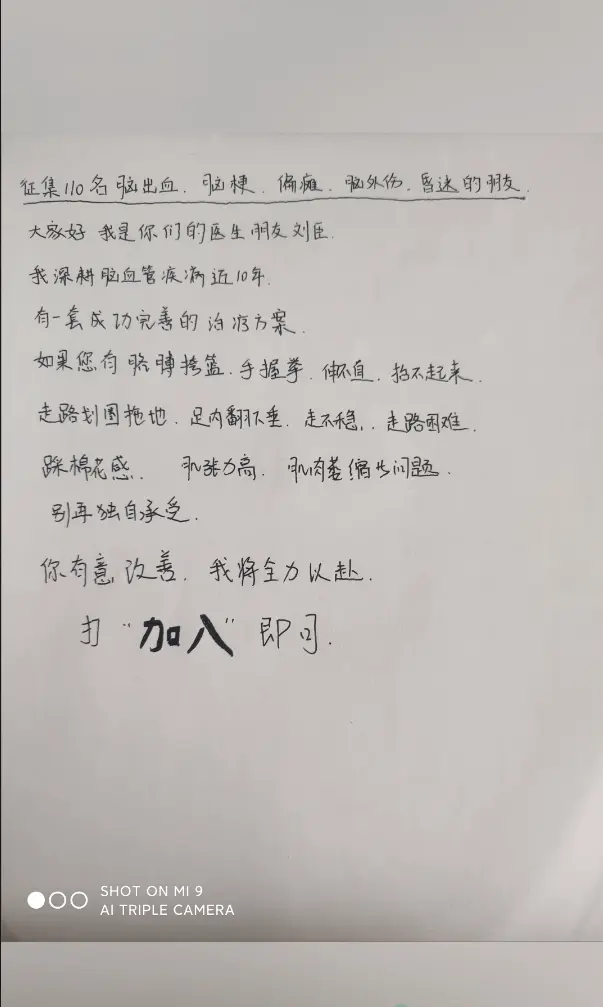 征集110名脑出血、脑梗、偏瘫、脑外伤、昏迷的朋友.
大家好 我是你们的医生朋友刘臣.
我深耕脑血管疾病近10年.
有一套成功完善的治疗方案.
如果您有胳膊挎篮、手握拳、伸不直、抬不起来.
走路划圈拖地、足内翻下垂、走不稳、走路困难.
踩棉花感、 肌张力高、 肌肉萎缩等问题.
别再独自承受.
你有意改善、我将全力以赴.
打“加入”即可.
SHOT ON MI 9
AI TRIPLE CAMERA